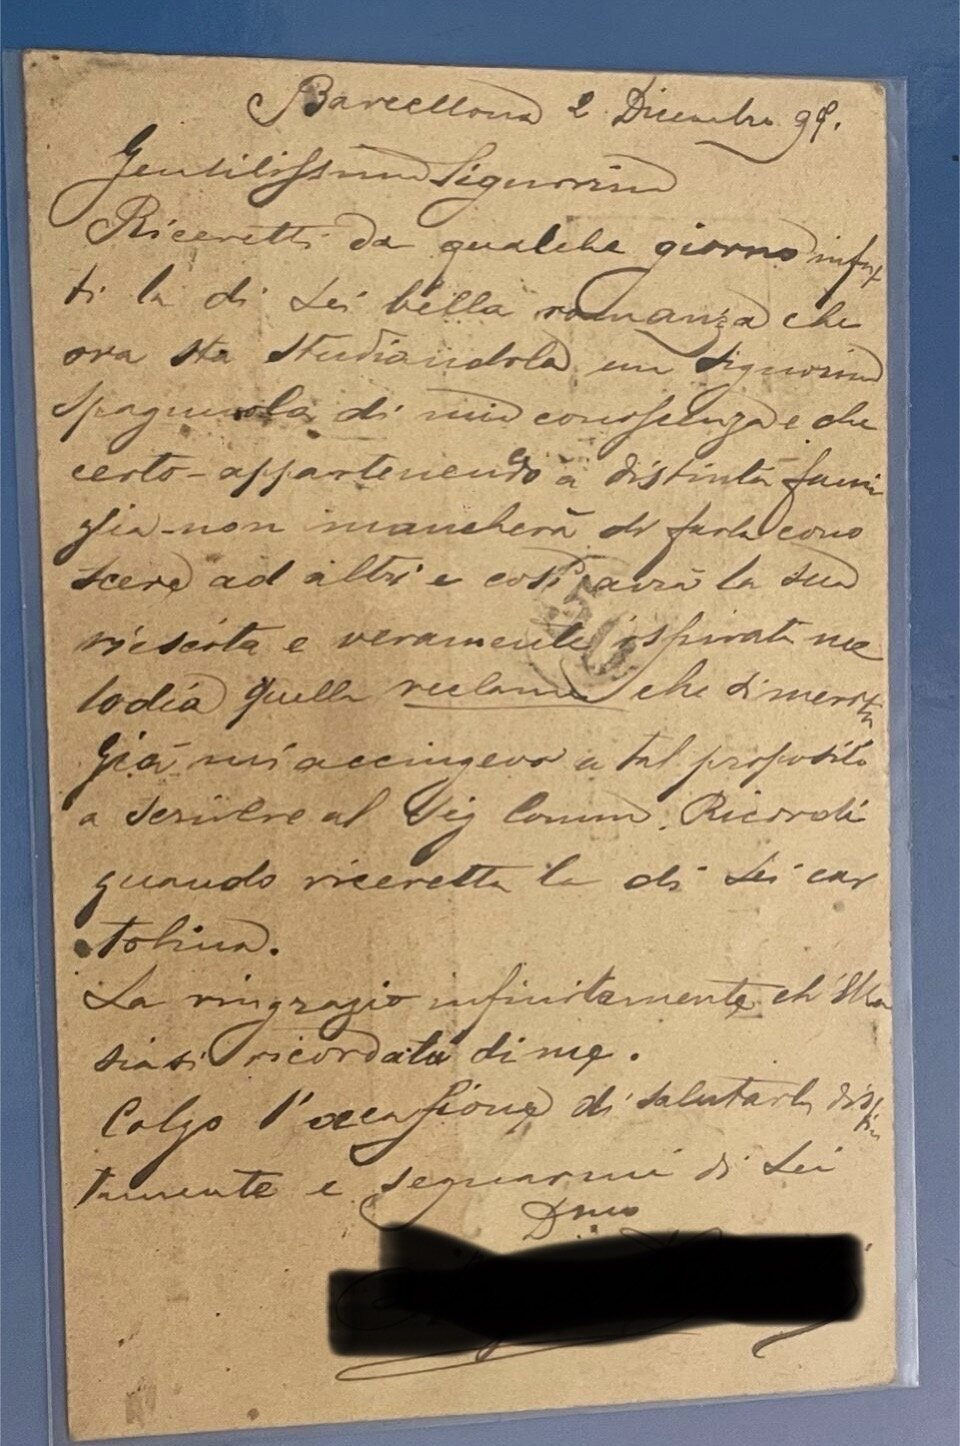 Barcellona 2 Dicembre 98.
Gentilissima Signorina
Ricevetti da qualche giorno infat
ti la di Lei bella romanza che
ora sta studiandola una Signorina
spagnuola di mia conoscenza e che
certo - appartenendo a distinta fami
glia - non mancherà di farla cono
scere ad altri e così avrà la sua
riescita e veramente ispirata me
lodia quella reclame che si merita
Già mi accingevo a tal proposito
a scrivere al Sig Comm. Ricordi
quando ricevetti la di Lei car
tolina.
La ringrazio infinitamente ch'Ella
siasi ricordata di me.
Colgo l'occasione di salutarla distin
tamente e segnarmi di Lei
Dmo